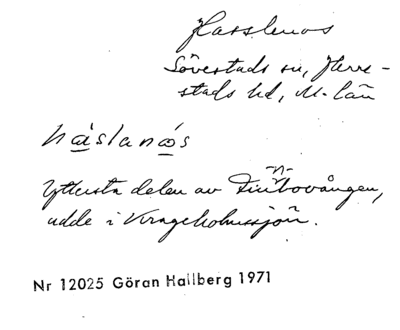 Hasslenos
Sövestads sn, Herre-
stads hd, M-län
hàslanòs
-n-
Yttersta delen av Finbovången,
udde i Krageholmssjön.
Nr 12025 Göran Hallberg 1971